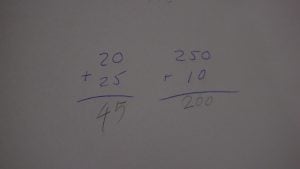 20 250
+ 25 + 10
45 200